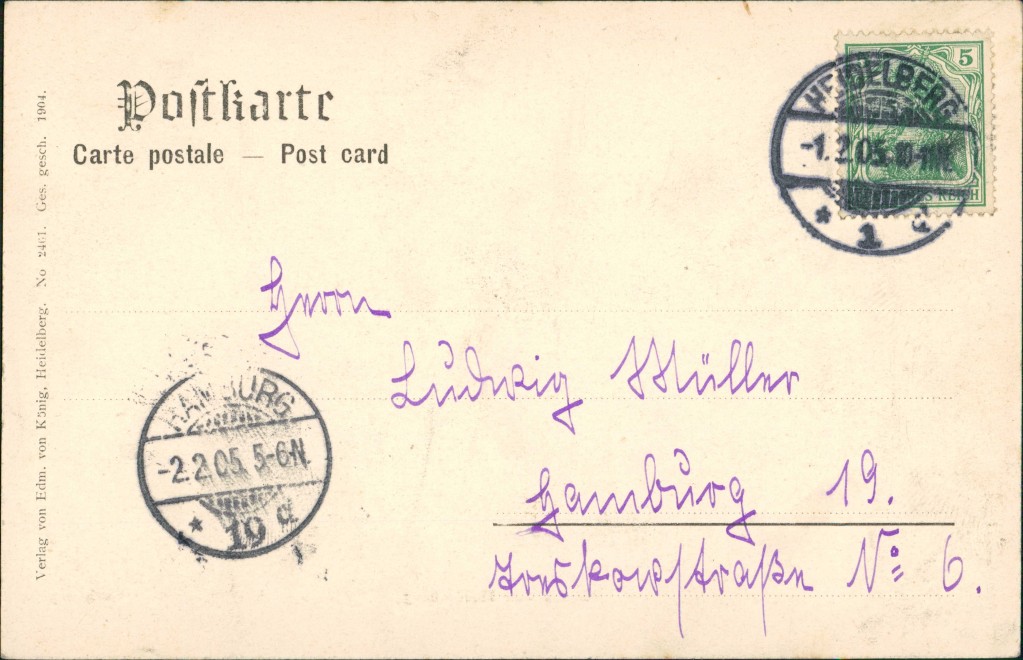 Postkarte
Carte postale — Post card
5
HEIDELBERG
-1.2.05.10-11V.
* 1 d
Herrn
Ludwig Müller
Hamburg 19.
Treskowstraße No 6.
HAMBURG
-2.2.05. 5-6N.
* 19 d
Verlag von Edm. von König, Heidelberg. No 2461. Ges. gesch. 1904.